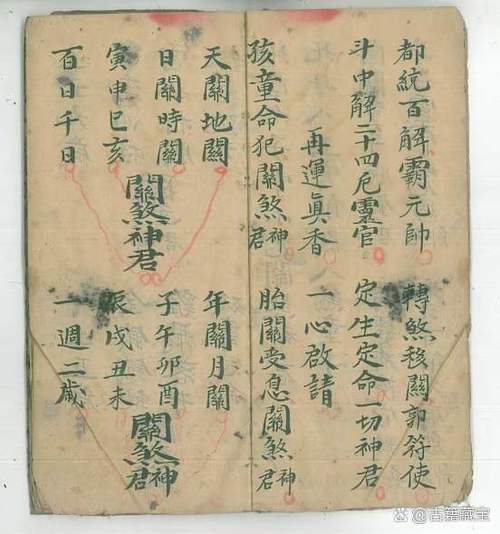 都統百解霸元帥 轉煞移關郭符使
斗中解二十四厄靈官 定生定命一切神君
再運眞香 一心啟請
孩童命犯關煞神君 胎關受息關煞神君
天關地關 年關月關
日關時關 子午卯酉
關煞神君 關煞神君
寅申巳亥 辰戌丑未
百日千日 一週二歲
头条@古籍藏宝